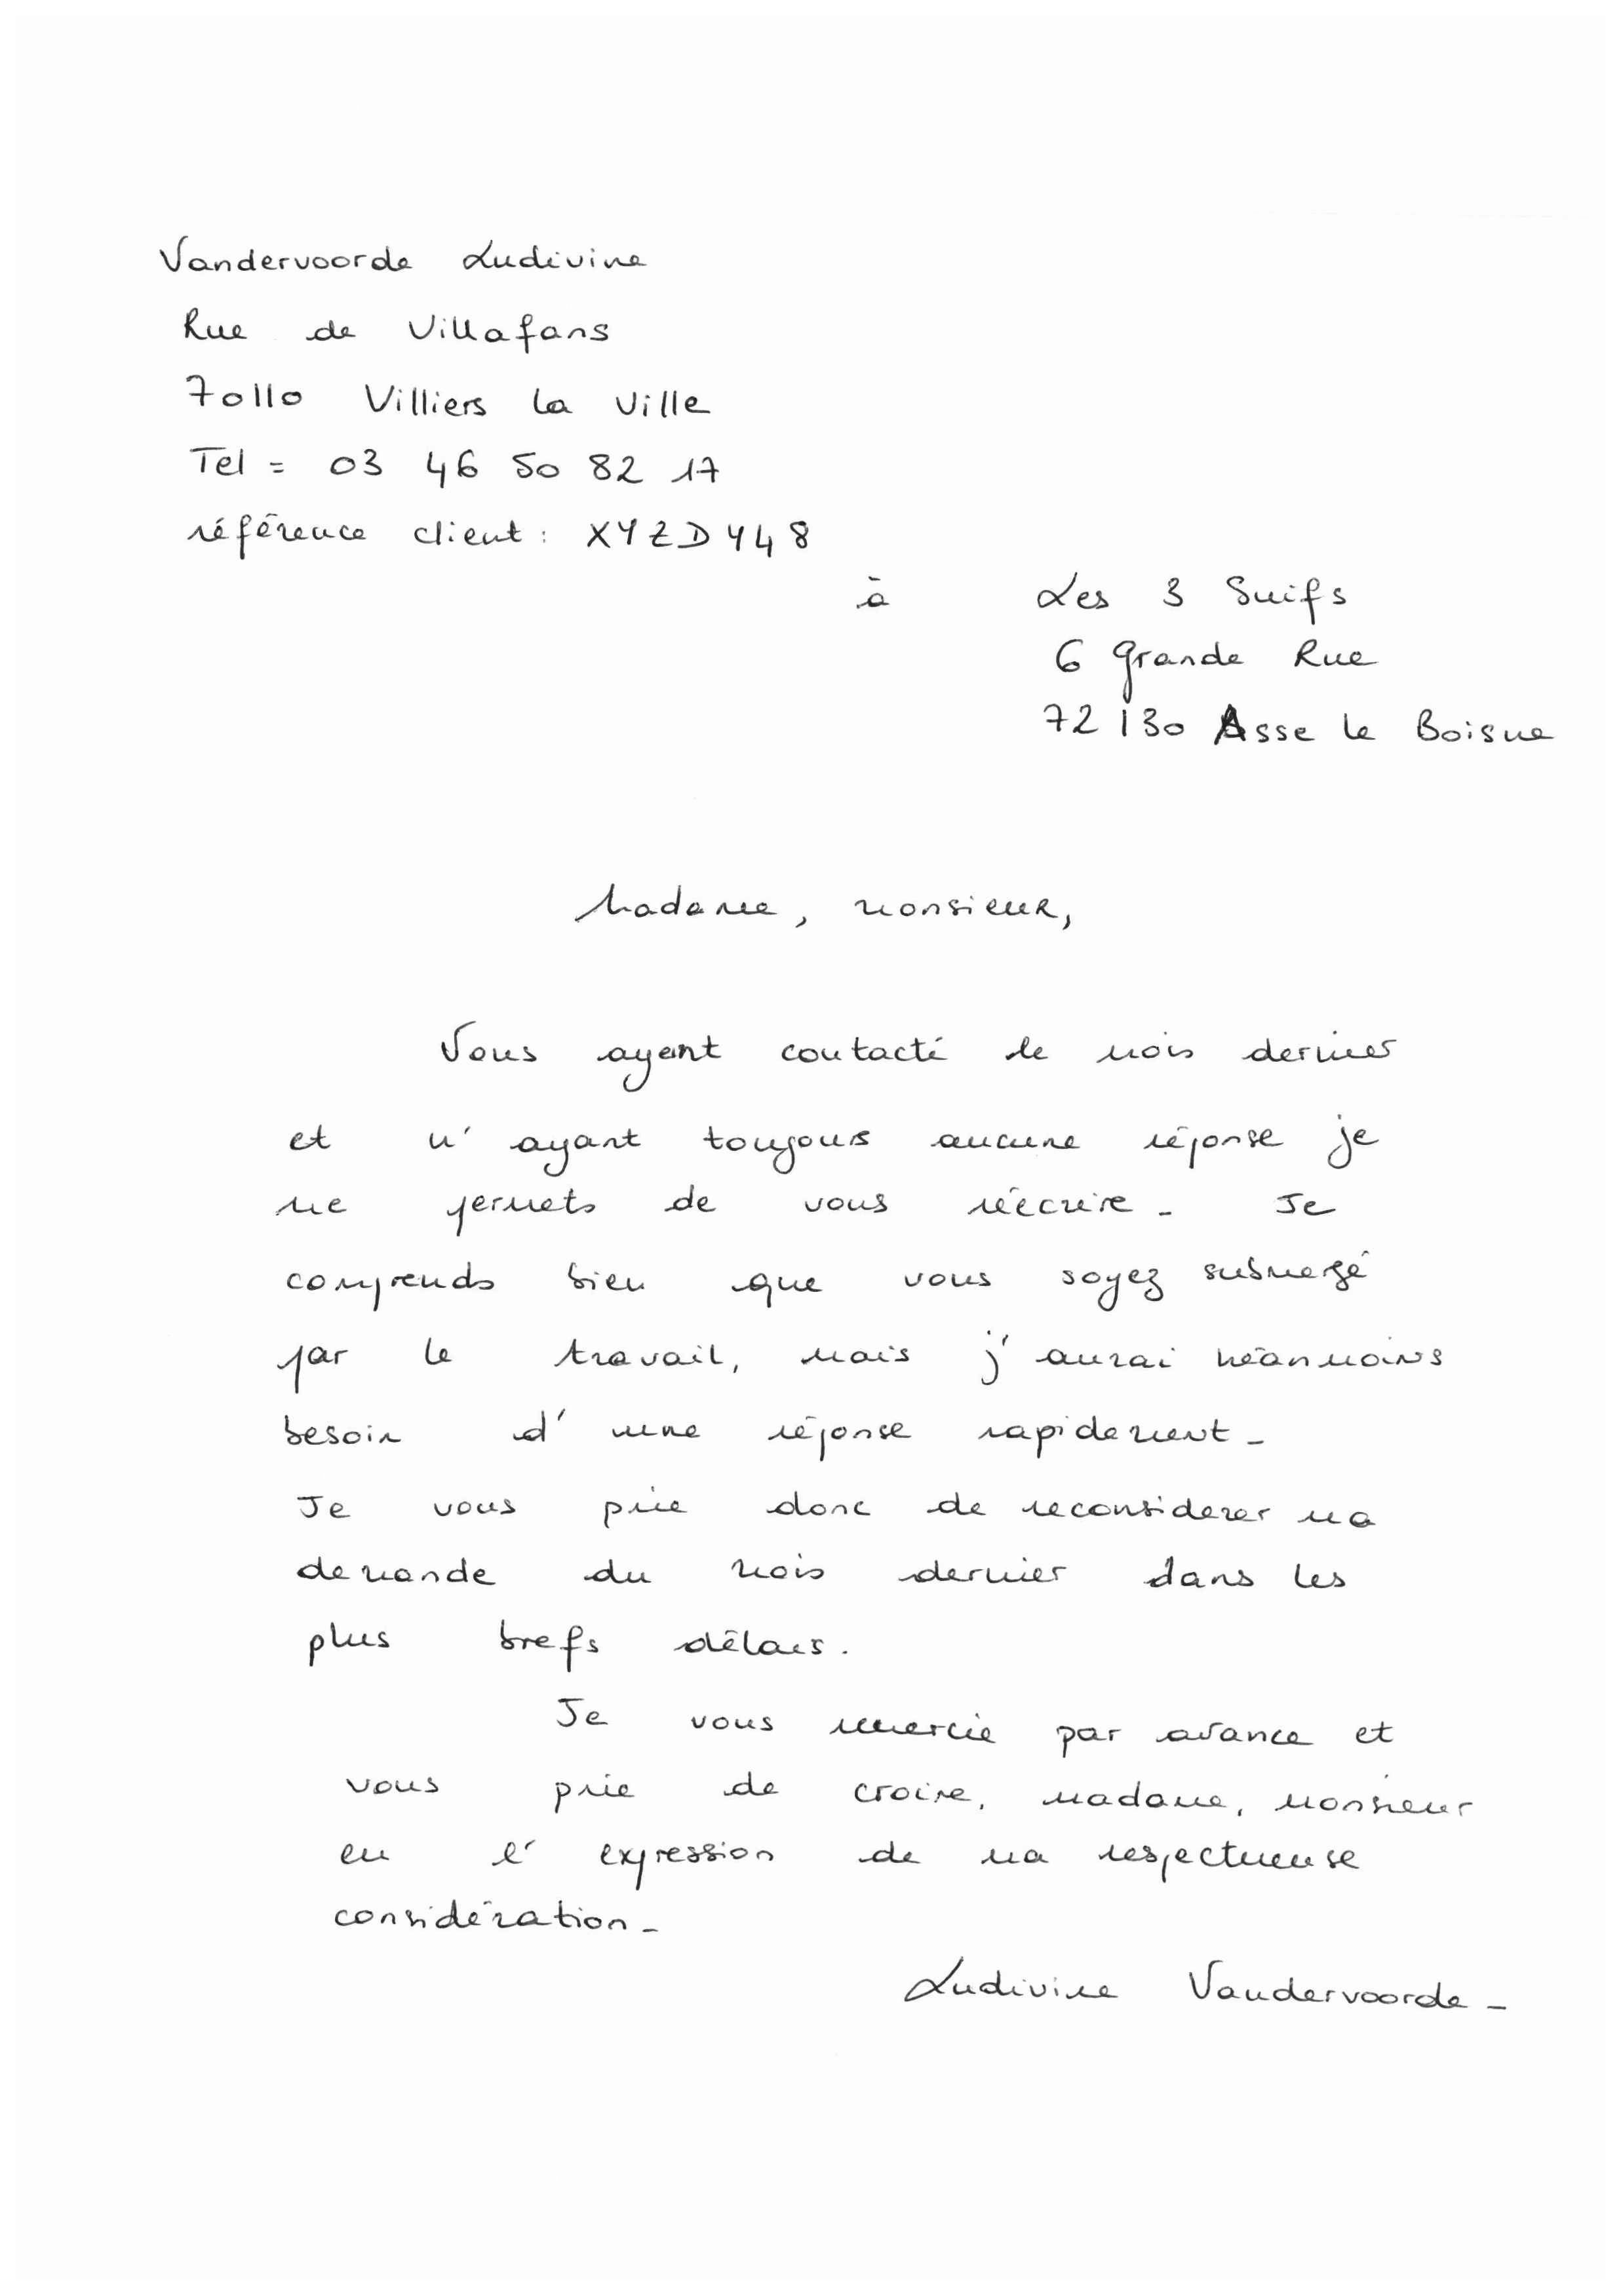 Vandervoorde Ludivine
Rue de Villafans
70110 Villiers la Ville
Tel = 03 46 50 82 17
référence client : XYZDY48
à Les 3 Suifs
6 grande Rue
72130 Asse le Boisne
Madame, Monsieur,
Vous ayant contacté le mois dernier
et n'ayant toujours aucune réponse je
me permets de vous réécrire.  Je
comprends bien que vous soyez submergé
par le travail, mais j'aurai néanmoins
besoin d'une réponse rapidement.
Je vous prie donc de reconsiderer ma
demande du mois dernier dans les
plus brefs délais.
Je vous remercie par avance et
vous prie de croire, madame, monsieur
en l'expression de ma respectueuse
considération.
Ludivine Vandervoorde.